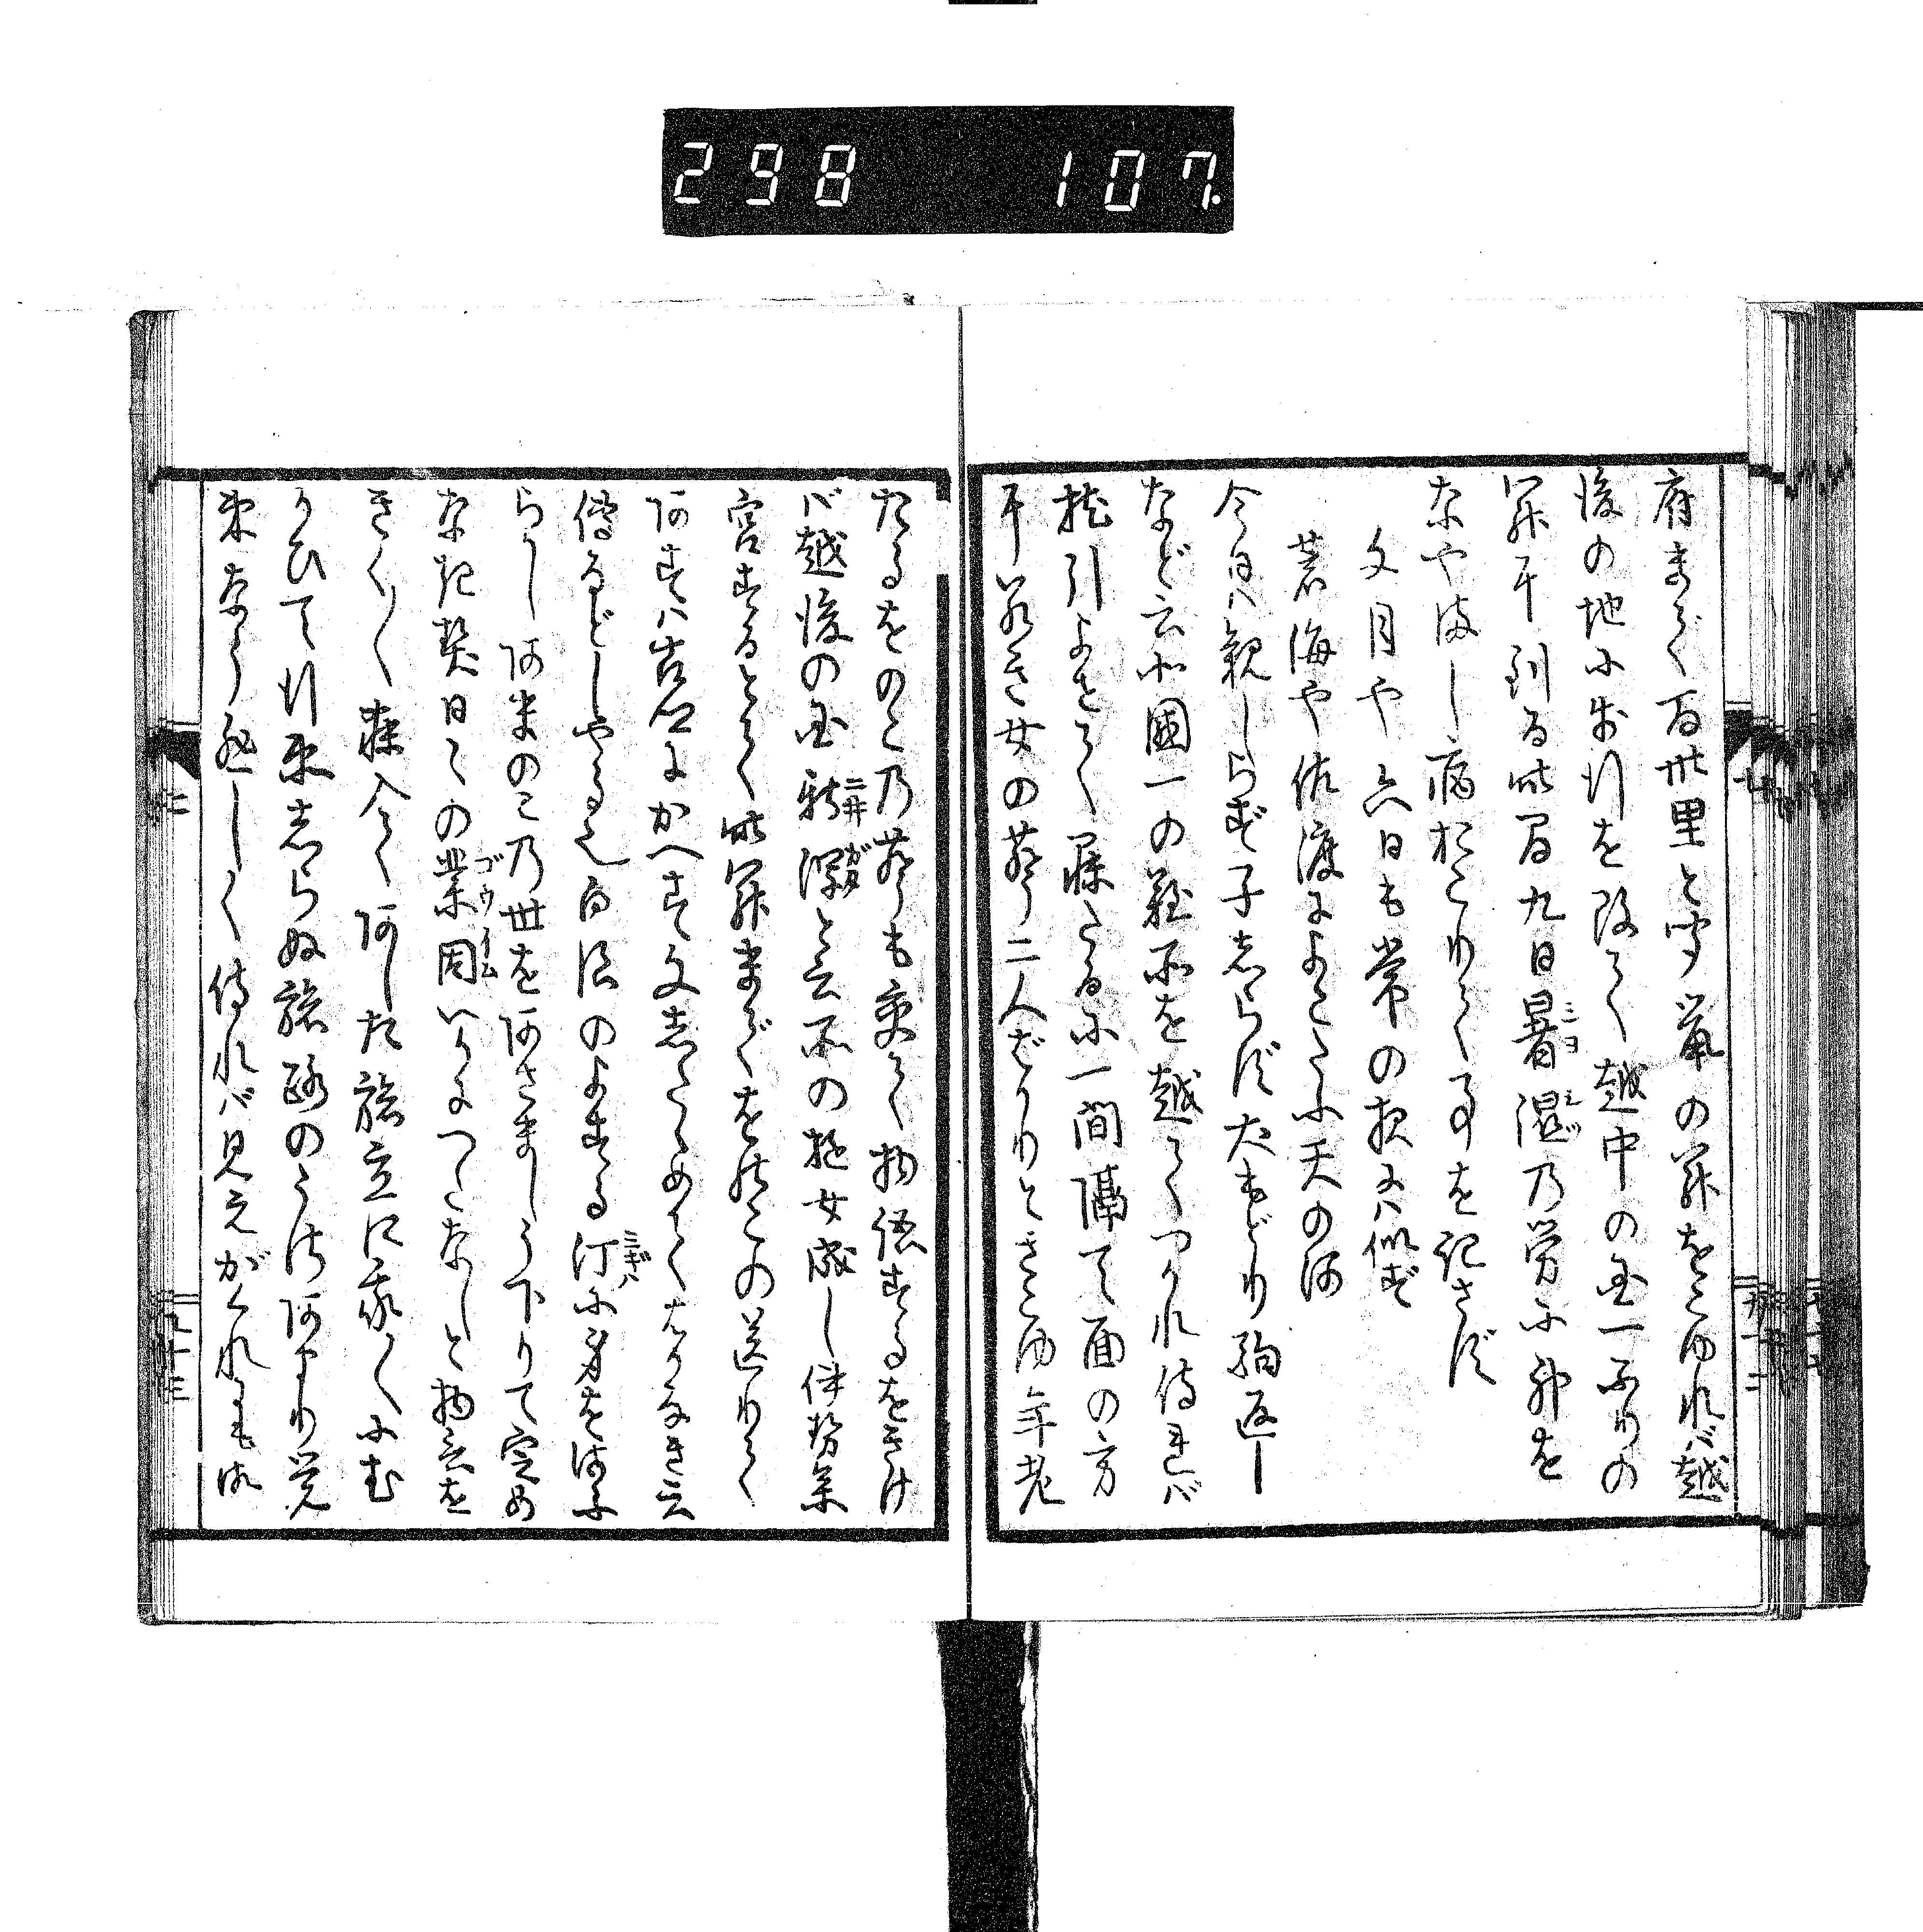 298 107.
府まで百卅里と聞鼠の関をこゆれバ越
後の地に歩行を改て越中の国一ふりの
関に到る此間九日暑湿乃労に神を
なやまし病おこりて事を記さず
文月や六日も常の夜には似ず
荒海や佐渡によこたふ天の河
今日ハ親しらず子しらず犬もどり駒返し
など云北國一の難所を越てつかれ侍れバ
枕引よせて寐たるに一間隔て面の方
に若き女の声二人ばかりときこゆ年老
たるをのこ乃声も交て物語するをきけ
バ越後の国新潟と云所の遊女成し伊勢参
宮するとて此関までをのこの送りて
あすハ古郷にかへす文したゝめてはかなき言
傳などしやる也白浪のよする汀に身をはふ
らかしあまのこ乃世をあさましう下りて定め
なき契日々の業因いかにつたなしと物云を
きく/\寐入てあした旅立に我/\にむ
かひて行衛しらぬ旅路のうさあまり覚
束なう悲しく侍れバ見えがくれにも御
ニ井ガタ
ミギハ
ゴウイム